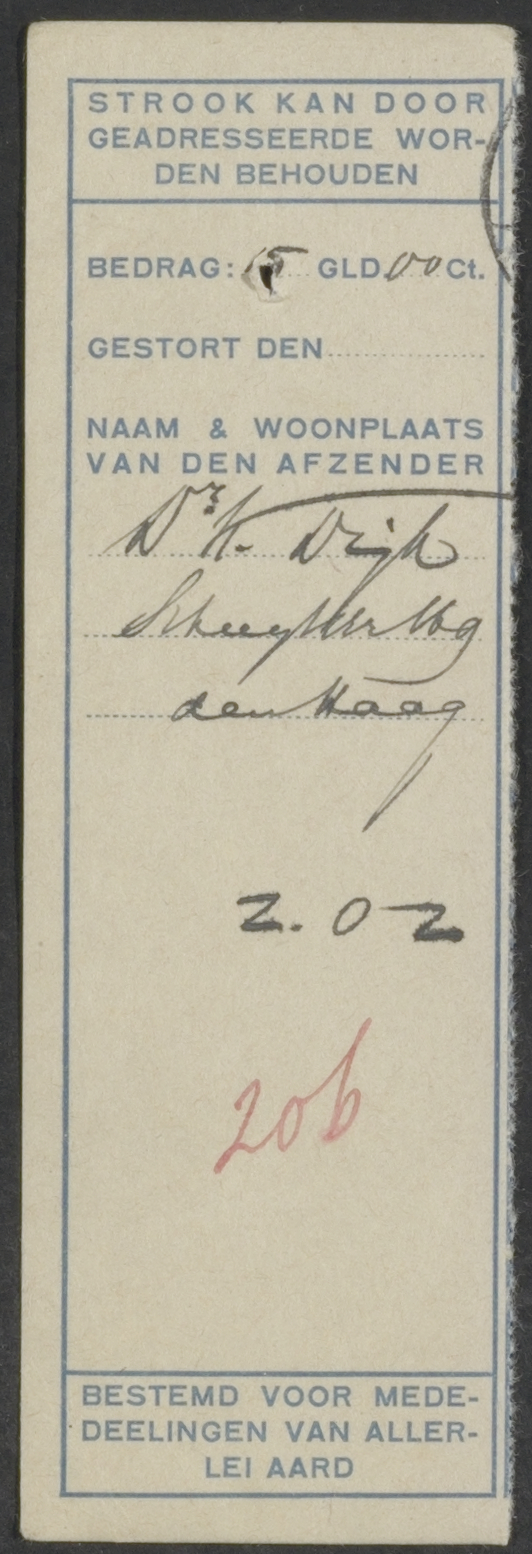 STROOK KAN DOOR
GEADRESSEERDE WOR-
DEN BEHOUDEN
BEDRAG: 15 GLD. 00 Ct.
GESTORT DEN
NAAM & WOONPLAATS
VAN DEN AFZENDER
Dr K. Dijk
den Haag
2.02
206
BESTEMD VOOR MEDE-
DEELINGEN VAN ALLER-
LEI AARD